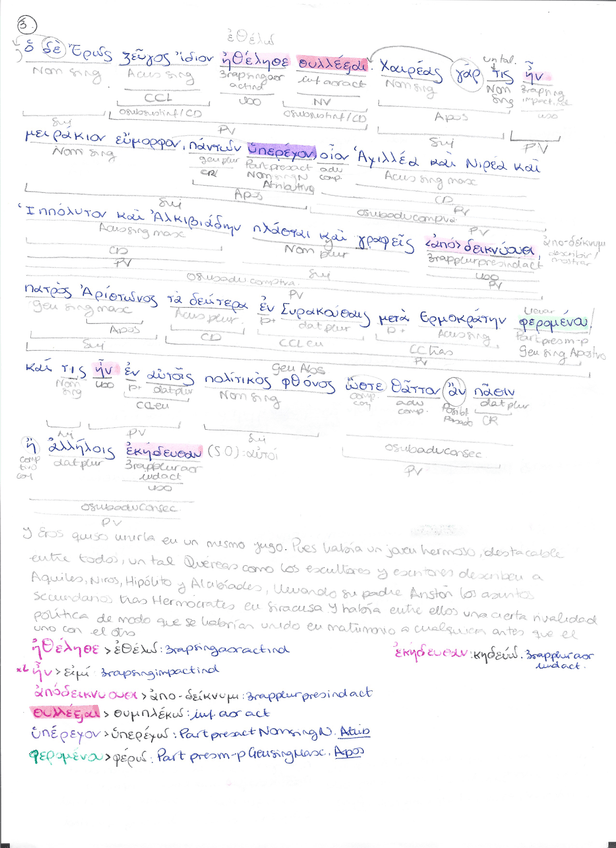 3.
ἐθέλω
ὁ δὲ Ἔρως ζεῦγος ἴδιον ἠθέλησε συλλέξαι. Χαιρέας γάρ τις ἦν
un tal.
Nom sing Acus sing 3ªapsingaor actind inf aor act Nom sing Nom sing 3ªapsing impact. ind
CCL UOO NV UOO
osubsustinf/CD osubsustinf/CD Apos
Suj PV Suj PV
μειράκιον εὔμορφον, πάντων ὑπερέχον, οἷον Ἀχιλλέα καὶ Νιρέα καὶ
Nom sing gen plur Part pres act Nom sing N adv comp. Acus sing masc
CR Atributivo CD
Apos PV
Suj osubadvcompva
PV
Ἱππόλυτον καὶ Ἀλκιβιάδην πλάσται καὶ γραφεῖς ἀποδεικνύουσι,
ἀπο-δείκνυμι
Acus sing masc Nom plur 3ªapplurpresindact describir/ mostrar
CD UOO
PV Suj PV
osubadvcompva
PV
πατρὸς Ἀρίστωνος τὰ δεύτερα ἐν Συρακούσαις μετὰ Ἑρμοκράτην φερομένου
Gen sing masc Acus plur P+ dat plur P+ Acus sing Part pres m-p
Apos CD CCL eu CC tras Gen sing Apostvo
Suj PV
Gen Abs
καί τις ἦν ἐν αὐτοῖς πολιτικὸς φθόνος ὥστε θᾶττον ἂν πᾶσιν
Nom sing UOO P+ dat plur Nom sing adv comp. dat plur
CCL eu CR
PV Suj osubadvconsec
PV
ἢ ἀλλήλοις ἐκήδευσαν (SO): αὐτοί
dat plur 3ªapplur aor indact
UOO
osubadvconsec
PV
Y Eros quiso unirla en un mismo yugo. Pues había un joven hermoso, destacable
entre todos, un tal Quéreas como los escultores y escritores describen a
Aquiles, Nireo, Hipólito y Alcibíades, llevando su padre Aristón los asuntos
secundarios tras Hermócrates en Siracusa y había entre ellos una cierta rivalidad
política de modo que se habrían unido en matrimonio a cualquiera antes que el
uno con el otro
ἠθέλησε > ἐθέλω: 3ªapsingaoractind ἐκήδευσαν: κηδεύω. 3ªapplur aor indact.
x2 ἦν > εἰμί 3ªapsingimpactind
ἀποδεικνυουσι > ἀπο-δείκνυμι: 3ªapplurpresindact
συλλέξαι > συμπλέκω: inf aor act
ὑπέρεχον > ὑπερέχω: Part presact NomsingN. Atrib
φερομένου > φέρω: Part presm-p GensingMasc. Apos